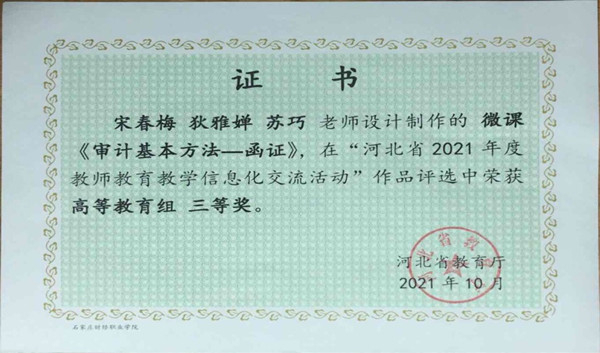 证 书
宋春梅 狄雅婵 苏巧 老师设计制作的 微课
《审计基本方法—函证》，在“河北省2021 年度
教师教育教学信息化交流活动”作品评选中荣获
高等教育组 三等奖。
河北省教育厅
2021 年 10 月
石家庄财经职业学院